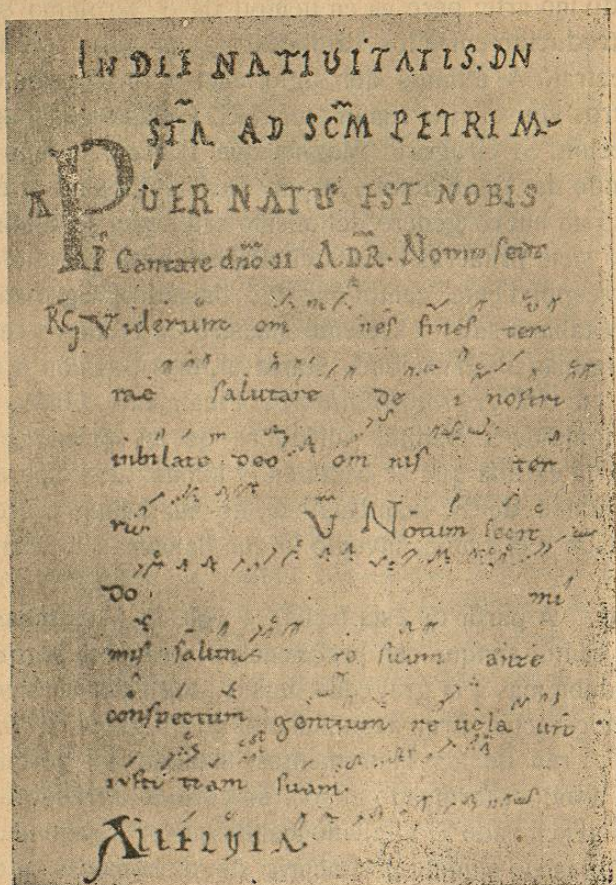 IN DIE NATIUITATIS. DN
STA AD SCM PETRI M-
A PUER NATUS EST NOBIS
P Cantate dno II A DR. Notum fecit
RG Viderunt om nes fines ter
rae salutare de i nostri
iubilate deo om nis ter
ra. V Notum fecit
do mi
nus saluta re suum ante
conspectum gentium re vela uit
iusti tiam suam.
Alleluia.